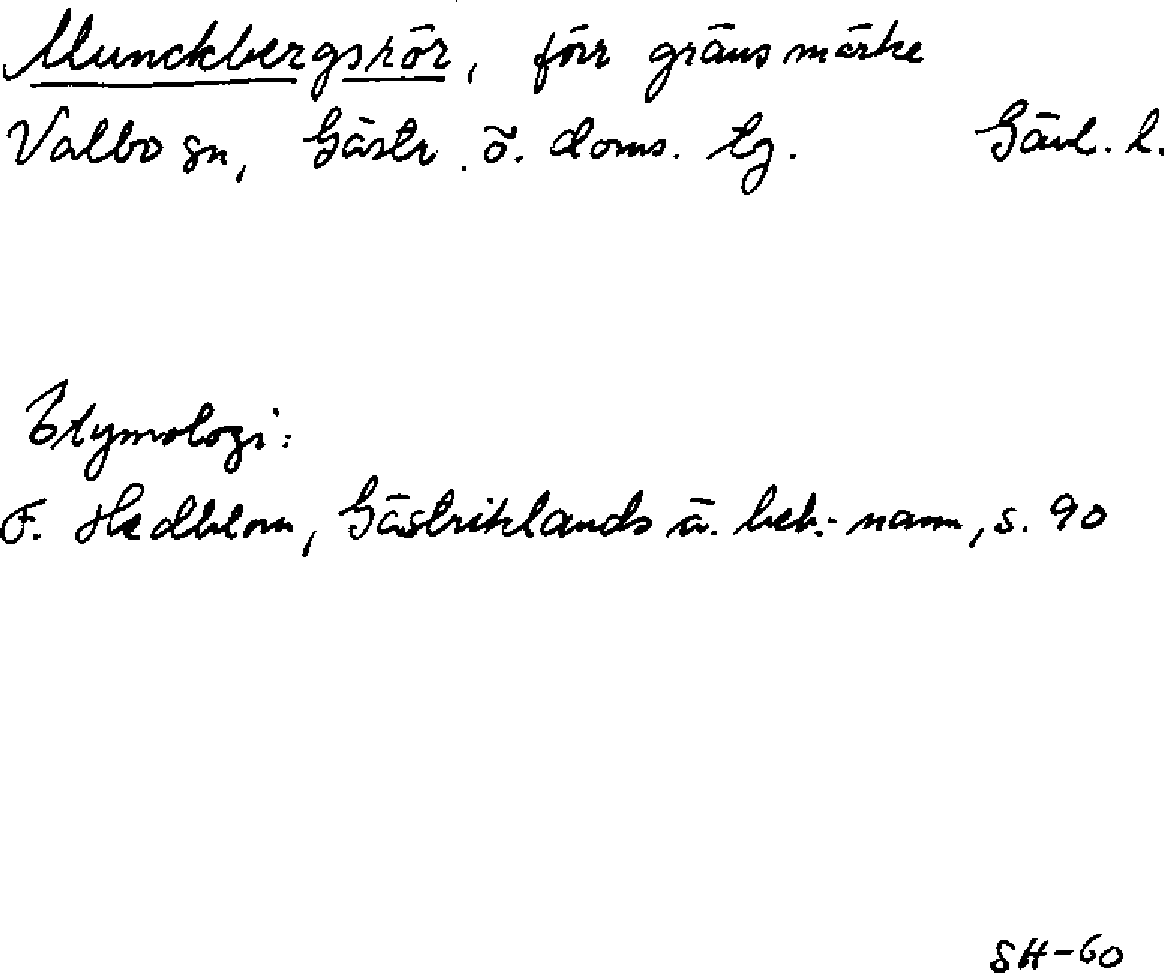 Munckbergsrör, förr gränsmärke
Valbo sn, Gästr. ö. doms. tg. Gävl. l.
Etymologi:
F. Hedblom, Gästriklands ä. beb.-namn, s. 90
SH-60